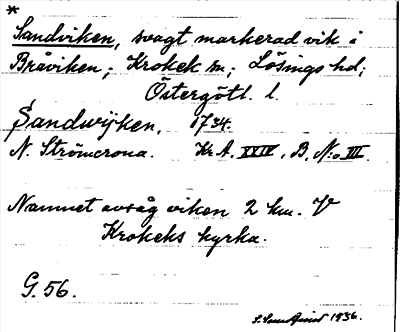 *
Sandviken, svagt markerad vik i
Bråviken; Krokek sn; Lösings hd;
Östergötl. l.
Sandwijken, 1734.
N. Strömcrona. Kr. A. XXIV, B, No III.
Namnet avsåg viken 2 km. V
Krokeks kyrka.
G. 56.
1936.